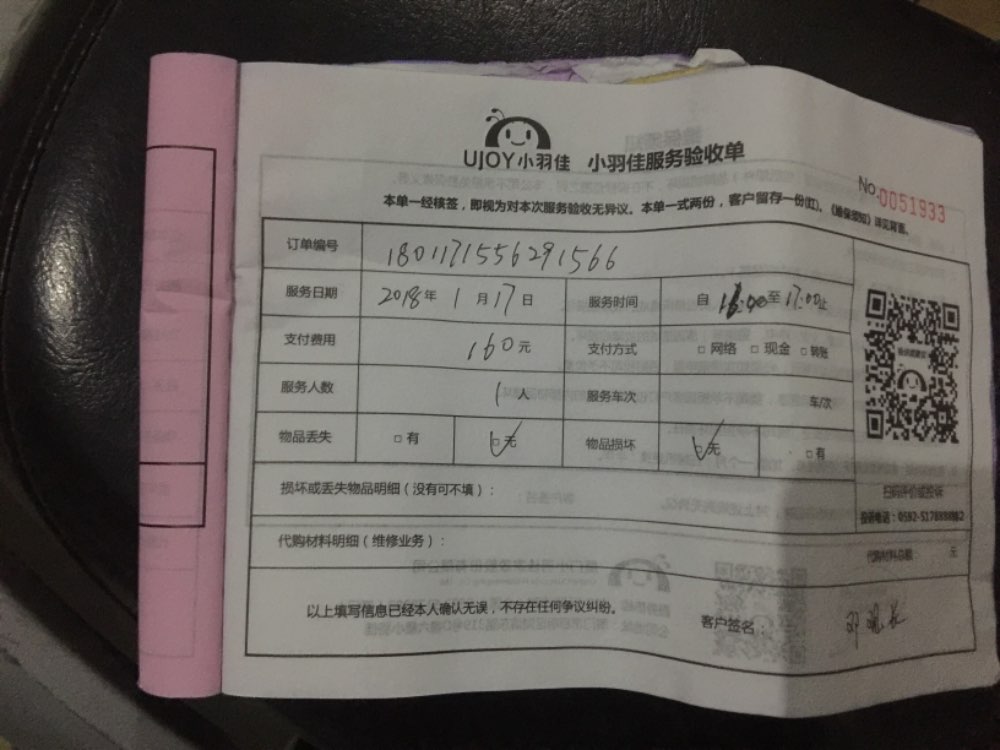 UJOY小羽佳 小羽佳服务验收单
No.0051933
本单一经核签，即视为对本次服务验收无异议。本单一式两份，客户留存一份(红)。《维保须知》详见背面。
订单编号 1801171556291566
服务日期 2018年1月17日 服务时间 自 16:00至17:00止
支付费用 160元 支付方式 □ 网络 □ 现金 □ 转账
服务人数 1人 服务车次 车/次
物品丢失 □ 有 □ 无 物品损坏 □ 无 □ 有
损坏或丢失物品明细（没有可不填）：
扫码评价或投诉
投诉电话：0592-5178888转2
代购材料明细（维修业务）： 代购材料总额 元
以上填写信息已经本人确认无误，不存在任何争议纠纷。 客户签名：